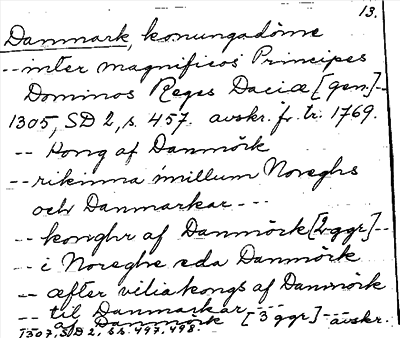 13.
Danmark, konungadöme
-- inter magnificos Principes
Dominos Reges Daciæ [gen.]--
1305, SD 2, s. 457. avskr. fr. tr. 1769.
-- Kong af Danmörk
-- rikinna imillum Noreghs
och Danmarkar ---
-- konghr af Danmörk [2 ggr] --
-- i Noreghe eda Danmörk
-- æfter vilia kongs af Danmörk
-- til Danmarkar ---
af Danmörk [3 ggr] --- avskr.
1307, SD 2, s. 497, 498.